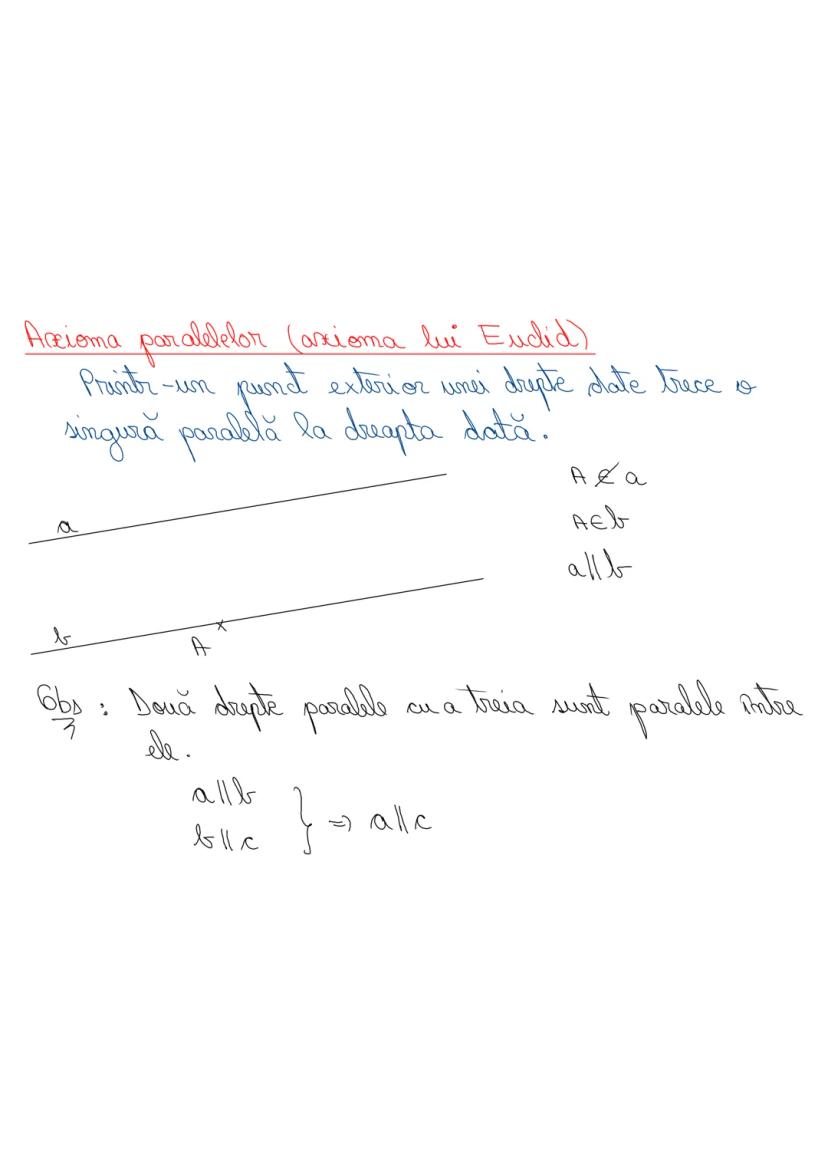 Axioma paralelelor (axioma lui Euclid)
Printr-un punct exterior unei drepte date trece o
singură paralelă la dreapta dată.
A ∉ a
a
A ∈ b
a ∥ b
b
A
Obs: Două drepte paralele cu a treia sunt paralele între
ele.
a ∥ b
} ⇒ a ∥ c
b ∥ c